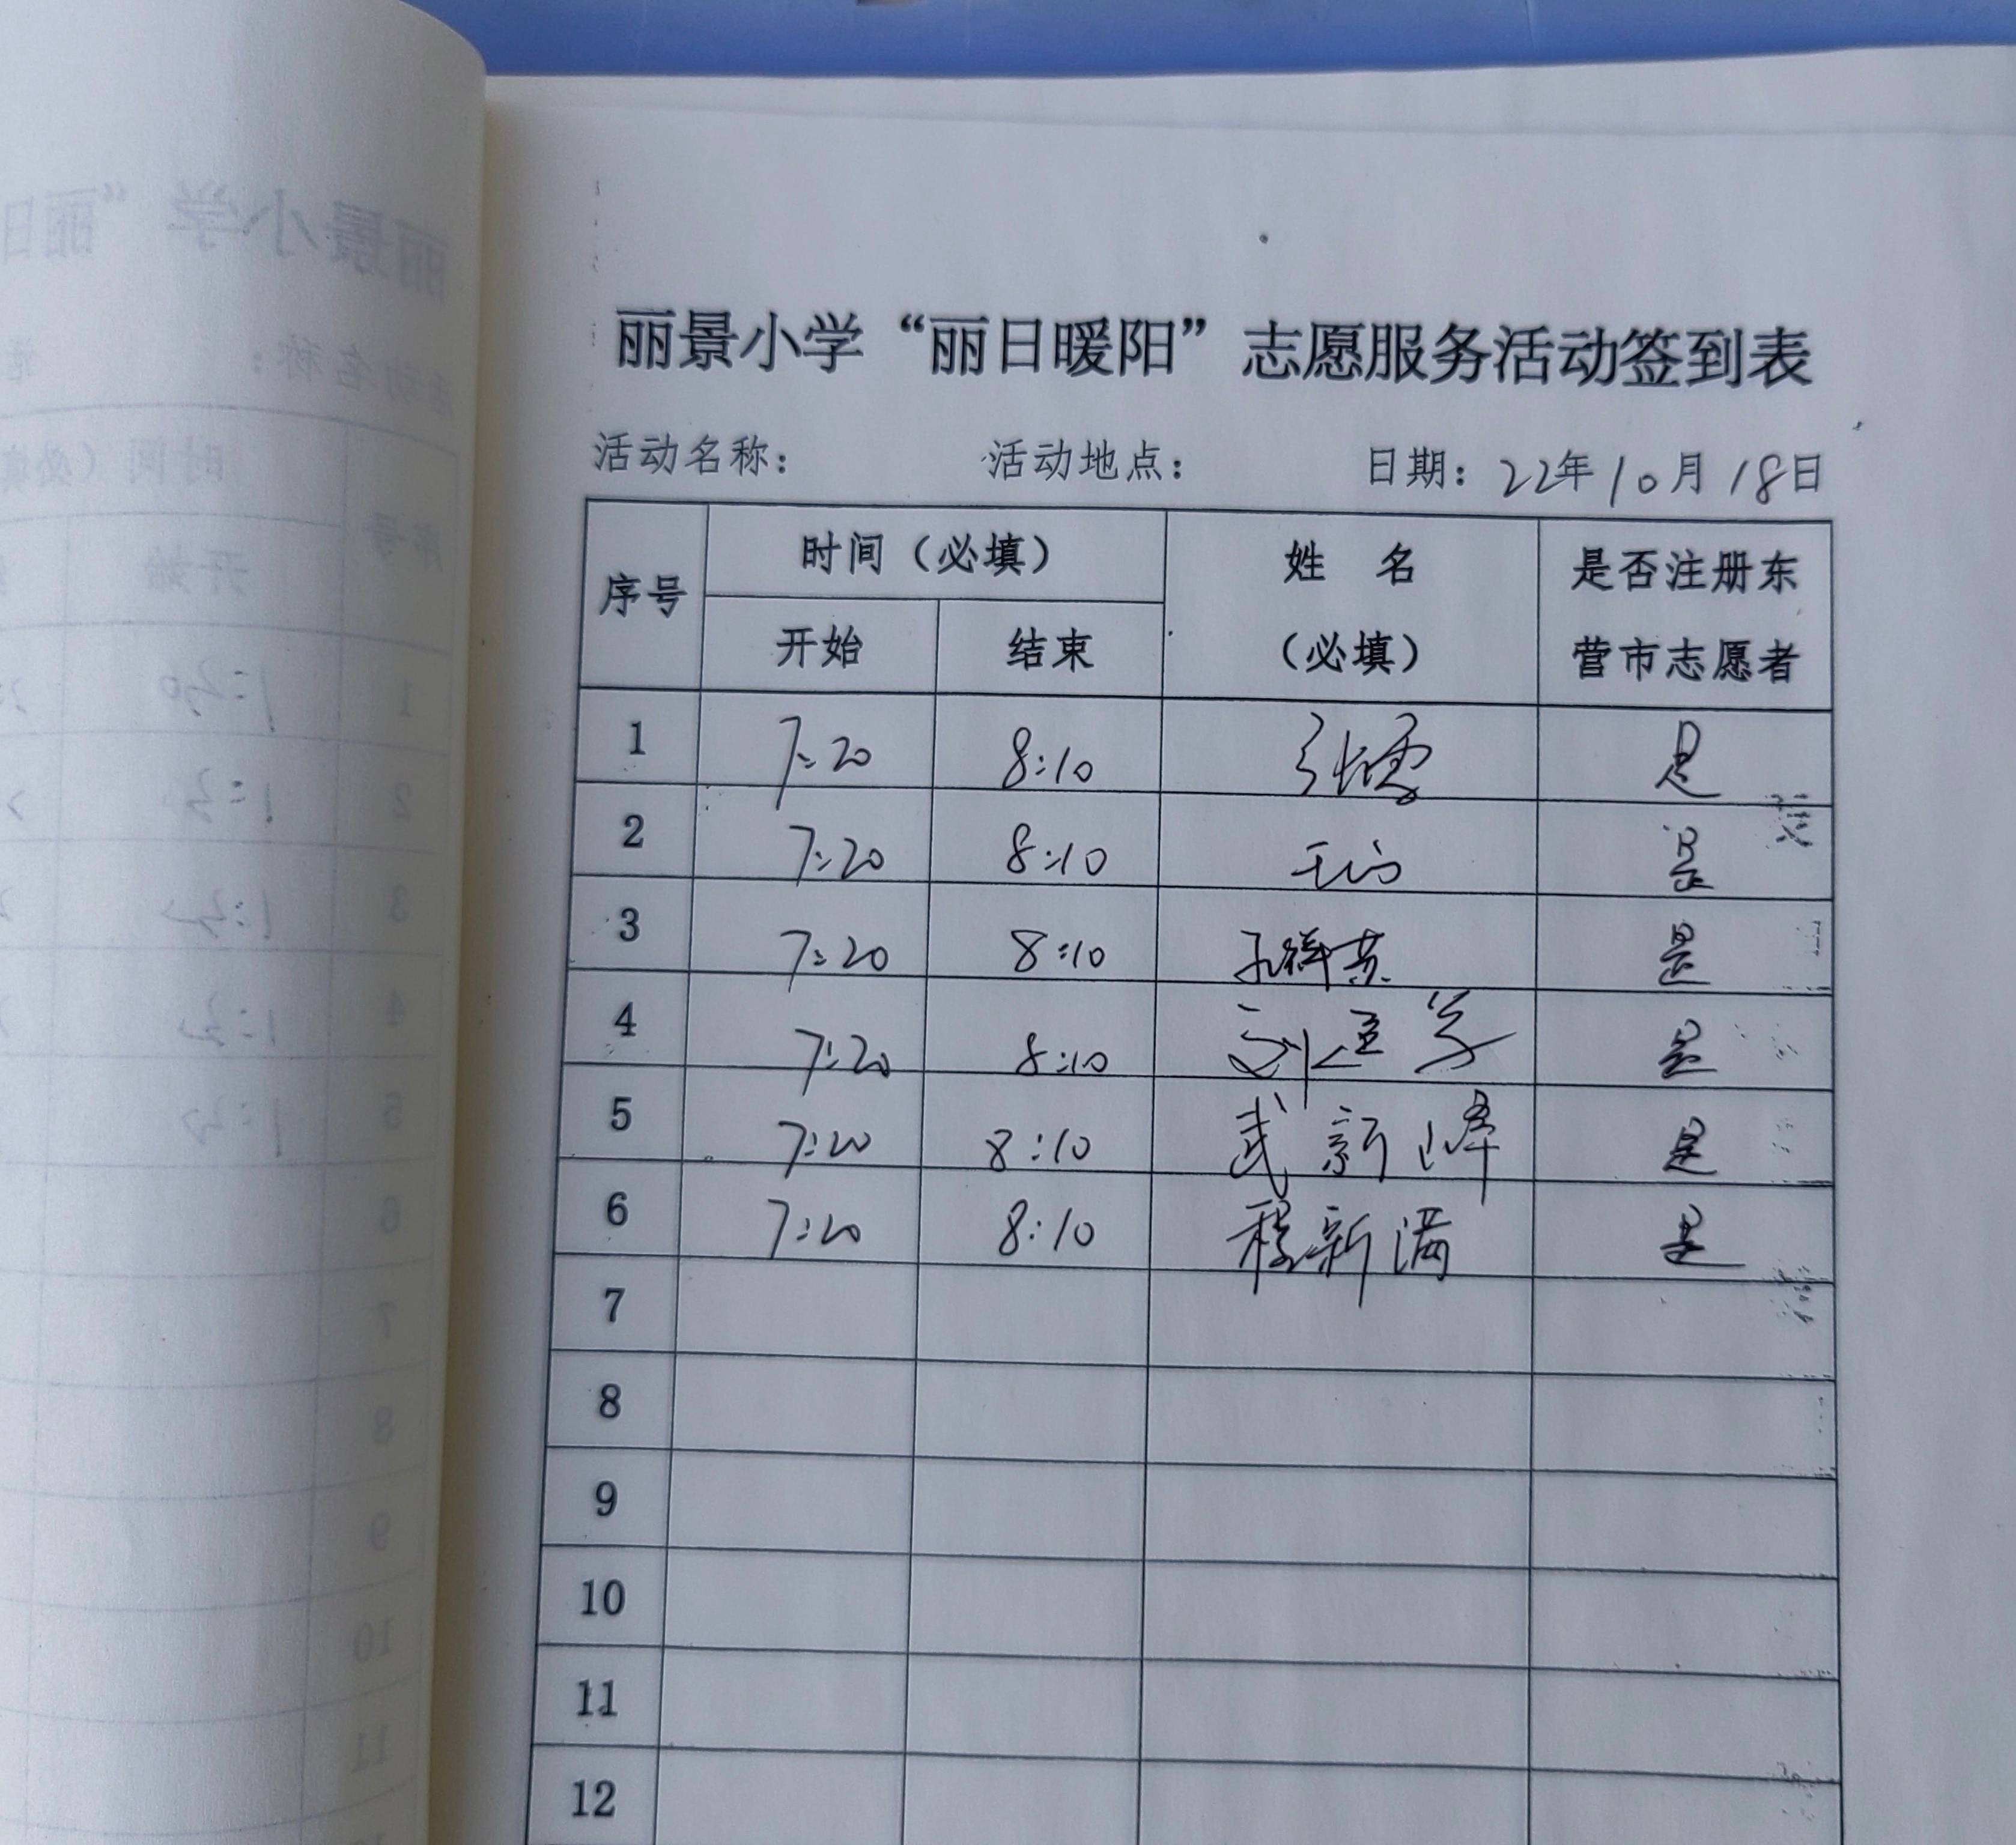 丽景小学“丽日暖阳”志愿服务活动签到表
活动名称： 活动地点： 日期：22年10月18日
序号 时间（必填） 姓 名（必填） 是否注册东营市志愿者
开始 结束
1 7:20 8:10 张霞 是
2 7:20 8:10 是
3 7:20 8:10 是
4 7:20 8:10 是
5 7:20 8:10 武新峰 是
6 7:20 8:10 程新满 是
7
8
9
10
11
12